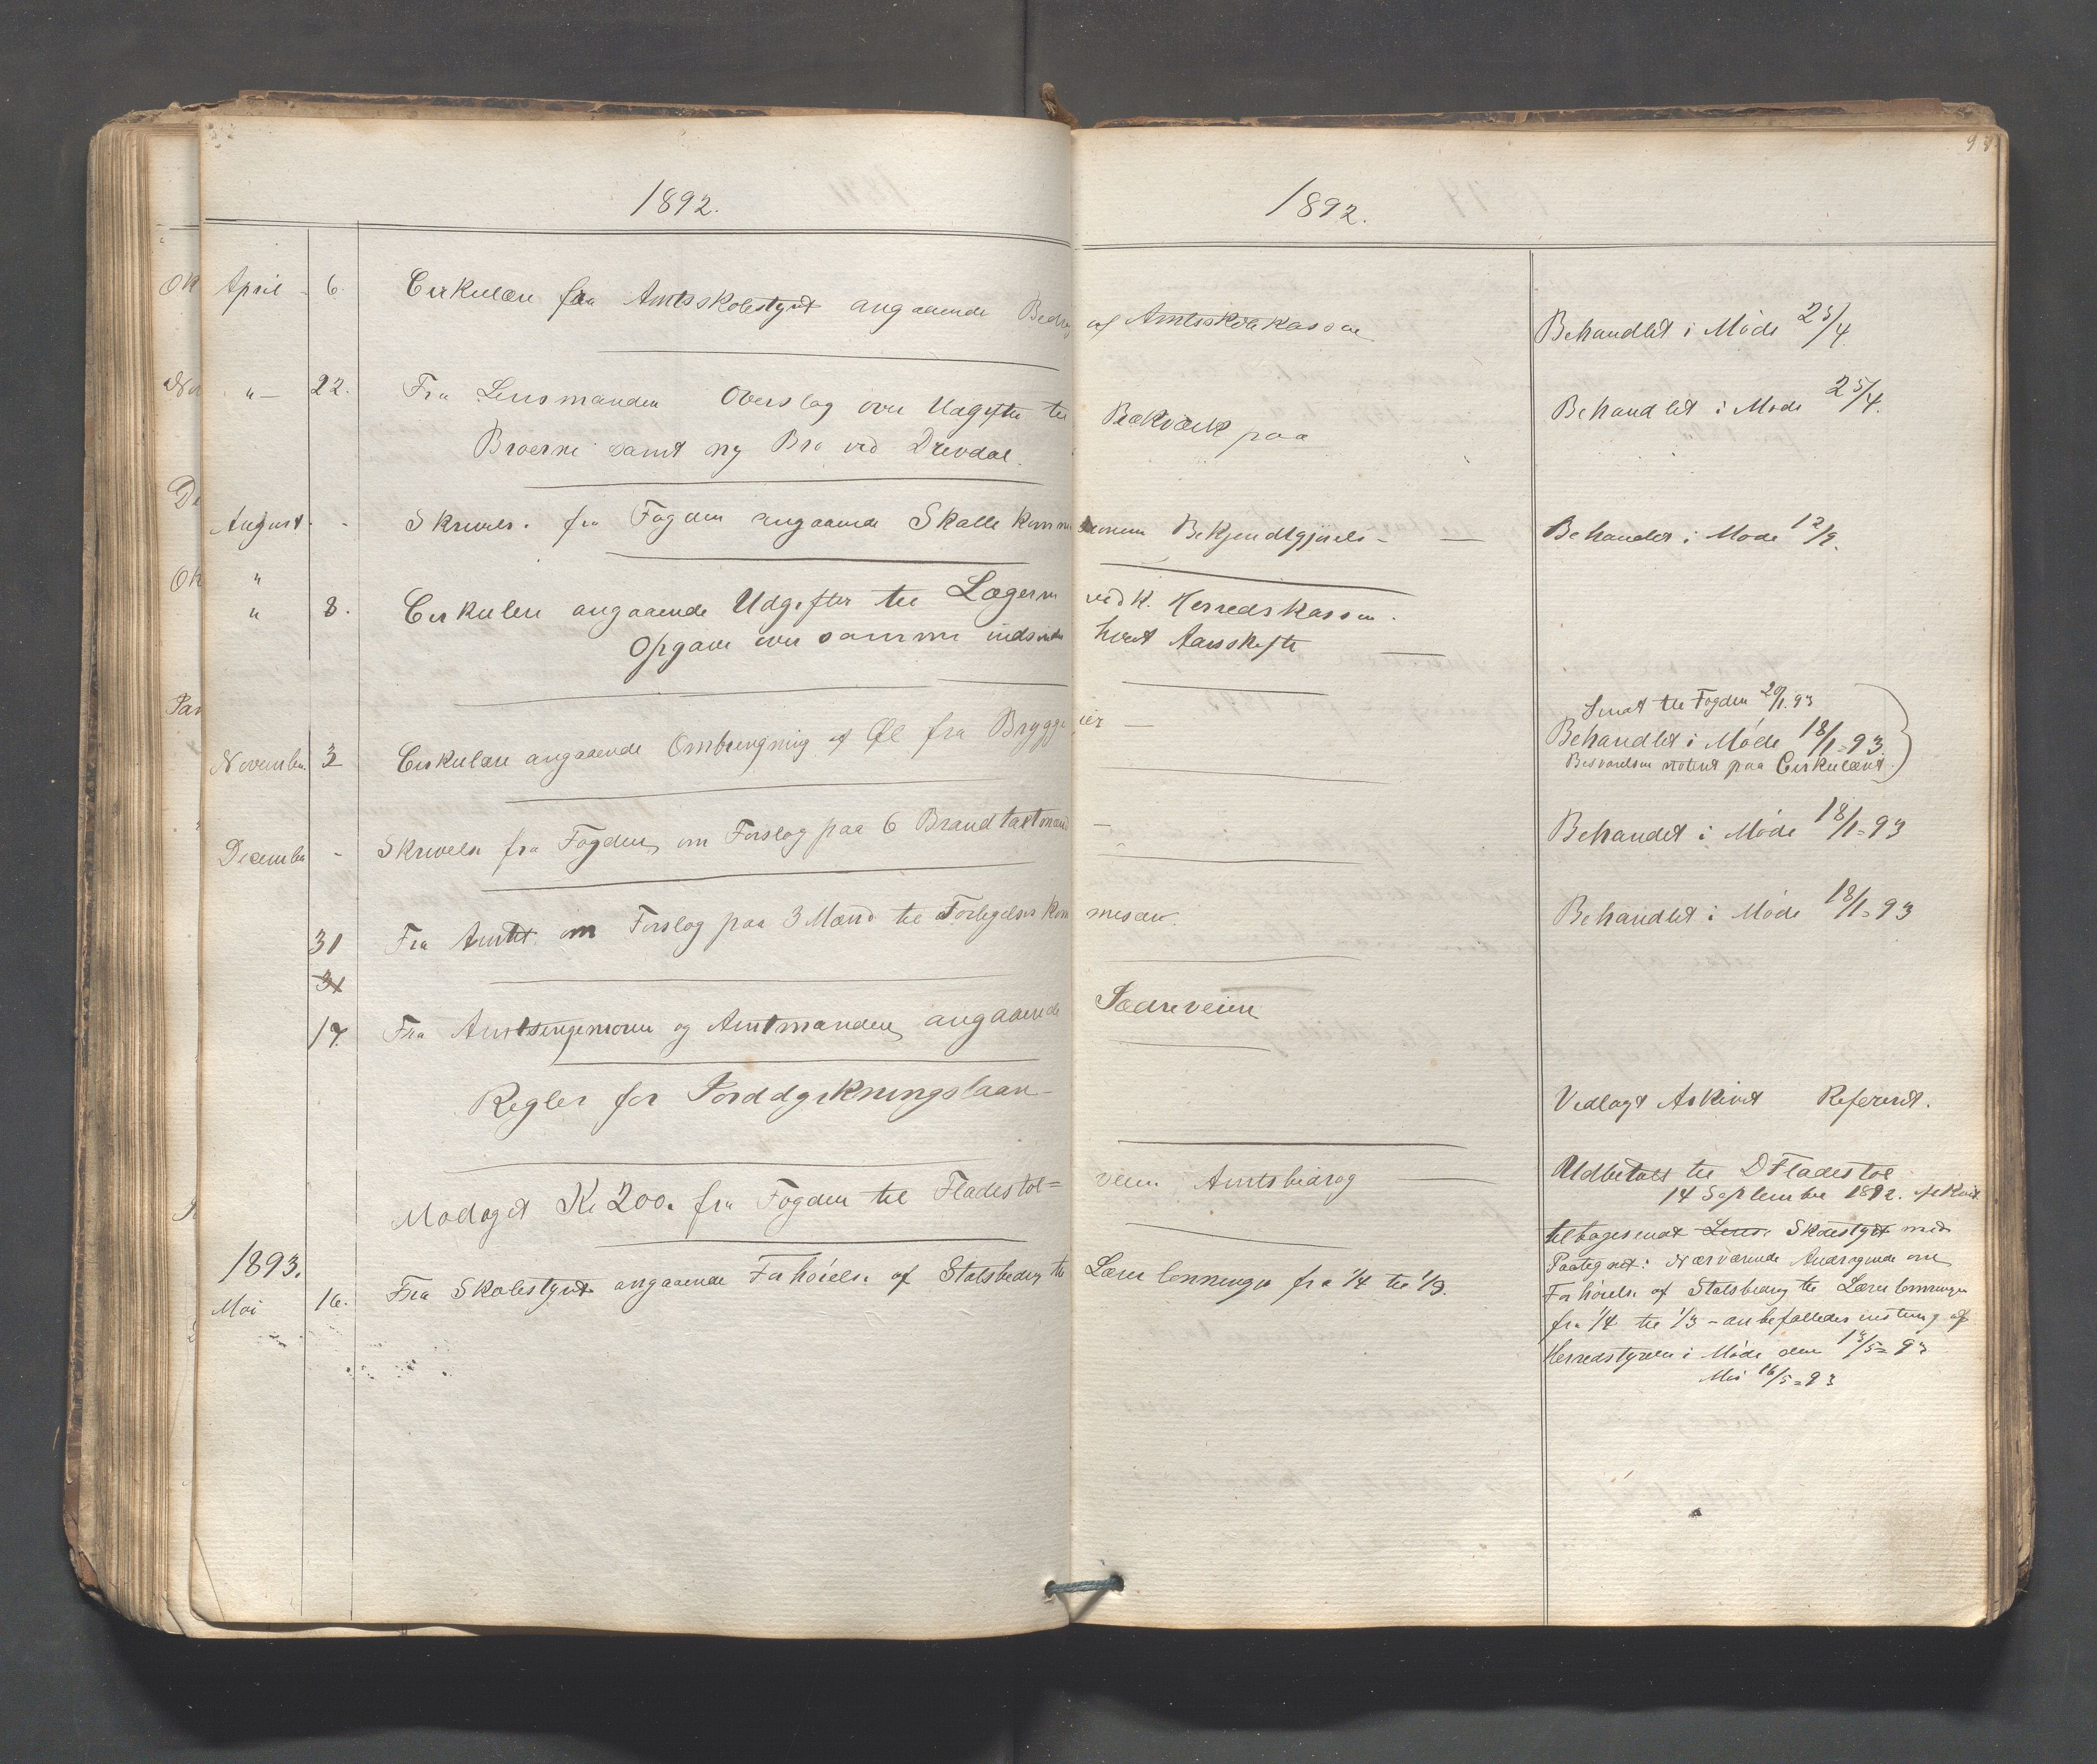 1892.
April 6. Cirkulære fra Amtsskolestyret angaaende Bedrag
" 22. Fra Lensmanden Overslag over Udgifter til
Broerne samt ny Bro ved Drivdal.
August - Skrivelse fra Fogden angaaende Skattekommi
"
" 8. Cirkulære angaaende Udgifter til Lægerne
Opgave over samme indsendes
November 3 Cirkulære angaaende Ombringning af Øl fra Brygge
December - Skrivelse fra Fogden, om Forslag paa 6 Brandtaxtmænd
31 Fra Amtet om Forslag paa 3 Mænd til Forligelses Kom
31
17. Fra Amtsingeniøren og Amtmanden, angaaende
Regler for Jorddyrkningslaan -
Modaget Kr 200. fra Fogden til Fladestøl=
1893.
Mai 16. Fra Skolestyret angaaende Forhøielse af Statsbedrag til
98
1892.
af Amtsskolekassen Behandlet i Møde 25/4.
Rækværk paa Behandlet i Møde 25/4.
sionens Bekjendtgjørelse - — Behandlet i Møde 12/9.
ved K. Herredskassen.
hvert Aarsskifte —
Sendt til Fogden 20/1.93
ier — Behandlet i Møde 18/1=93.
Besvarelsen noteret paa Cirkulæret.
— Behandlet i Møde 18/1=93
mission. Behandlet i Møde 18/1=93
Jædreveien
Vedlagt Arkivet Refereret.
veien Amtsbidrag — Udbetalt til D Fladestøl
14 September 1892.
tilbagesendt Lens. Skolestyret med
Lærerlønninger fra 1/4 til 1/3. Paategnet: Nærværende Andragende om
Forhøielse af Statsbedrag til Lærerlønninger
fra 1/4 til 1/3 - anbefalledes af
Herredstyrelsen i Møde den 13/5=93
16/5=93